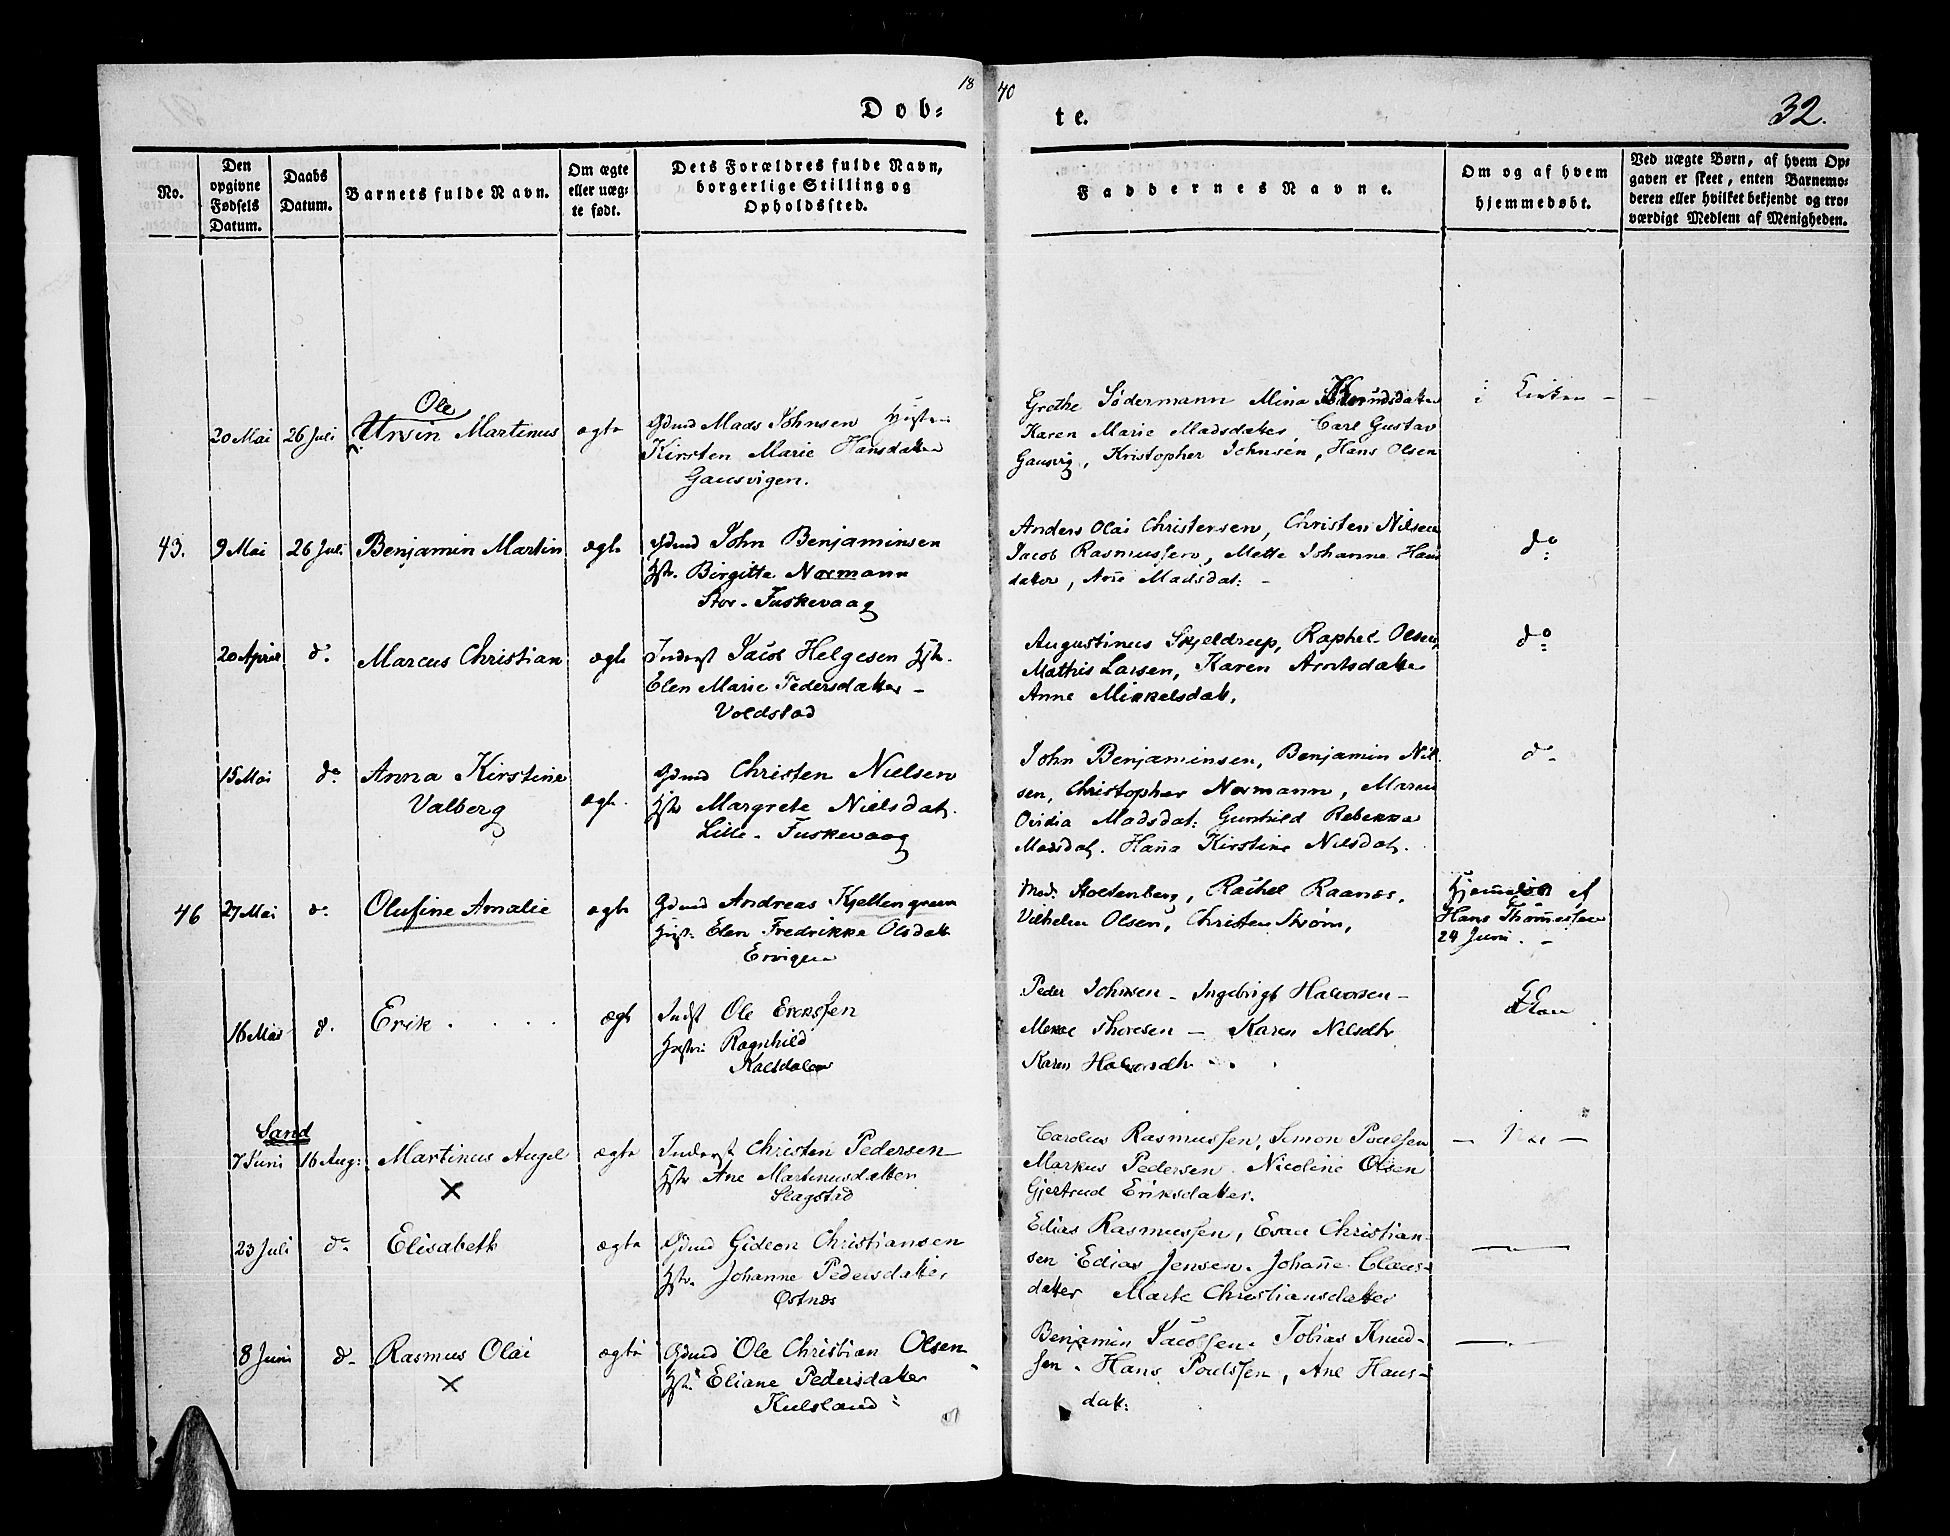 18 40
Døb- te. 32.
No.
Den opgivne Fødsels Datum.
Daabs Datum.
Barnets fulde Navn.
Om ægte eller uæg- te født.
Dets Forældres fulde Navn, borgerlige Stilling og Opholdssted.
Faddernes Navne.
Om og af hvem hjemmedøbt.
Ved uægte Børn, af hvem Op- gaven er skeet, enten Barnemo- deren eller hvilket bekjendt og tro- værdigt Medlem af Menigheden.
Ole
20 Mai 26 Juli Ursin Martinus ægte Gdmd Mads Johnsen
Kirsten Marie Hansdatter
Gausvigen.
Grethe Södermann Mina
Karen Marie Madsdatter, Carl Gustav
Gausvig, Kristopher Johnsen, Hans Olsen
i Kirken -
43. 9 Mai 26 Juli Benjamin Martin ægte Gdmd John Benjaminsen
Hstr. Birgitte Normann
Stor-Fuskevaag
Anders Olai Christensen, Christen Nilsen
Jacob Rasmussen, Mette Johanne Hans
datter, Ane Madsdat: -
do
20 April do Marcus Christian ægte Inderst Jacob Helgesen Hstr.
Elen Marie Pedersdatter -
Voldstad
Augustinus Skjeldrup, Raphel Olsen,
Mathis Larsen, Karen Arntsdatter
Anne Mikkelsdatt,
do
15 Mai do Anna Kirstine
Valberg
ægte. Gdmd Christen Nielsen
Hstr Margrete Nielsdat.
Lille-Fuskevaag
John Benjaminsen, Benjamin Niel
sen, Christopher Normann, Maren
Ovidia Madsdat: Gunhild Rebekka
Madsdat. Hana Kirstine Nilsdat.
do
46 27 Mai do Olufine Amalie ægte Gdmd Andreas Kjellingreen
Hustr. Elen Fredrikke Olsdatt
Ervigen
Mad. Stoltenberg, Rachel Raanæs,
Vilhelm Olsen, Christen Strøm,
Hjemedøbt af
Hans Thomessen
24 Juni. -
16 Mai d. Erik . . . . ægte Indst Ole Erikssen
Hustru Ragnhild
Kalsdalen
Peder Johnsen - Ingebrigt Halvorsen -
Thoresen - Karen Nilsdtr
Karen Halvorsdtr
Sand
7 Juni 16 Aug: Martinus Angel ægte Inderst Christen Pedersen
x
Hstr Ane Martinusdatter
Slagstad
Carolus Rasmussen, Simon Poulsen
Markus Pedersen. Nicoline Olsen
Gjertrud Eriksdatter.
- Nei -
23 Juli do Elisabeth ægte Gdmd Gideon Christiansen
Hstr. Johanne Pedersdatter
Østnæs
Edias Rasmussen, Esau Christian-
sen Edias Jensen. Johane Claus-
datter Marte Christiansdatter
8 Juni d- Rasmus Olai ægte Gdmd Ole Christian Olsen
x
Hstr. Eliane Pedersdatter
Kulsland
Benjamin Jacobsen. Tobias Knud-
sen. Hans Poulssen, Ane Hans-
datt: